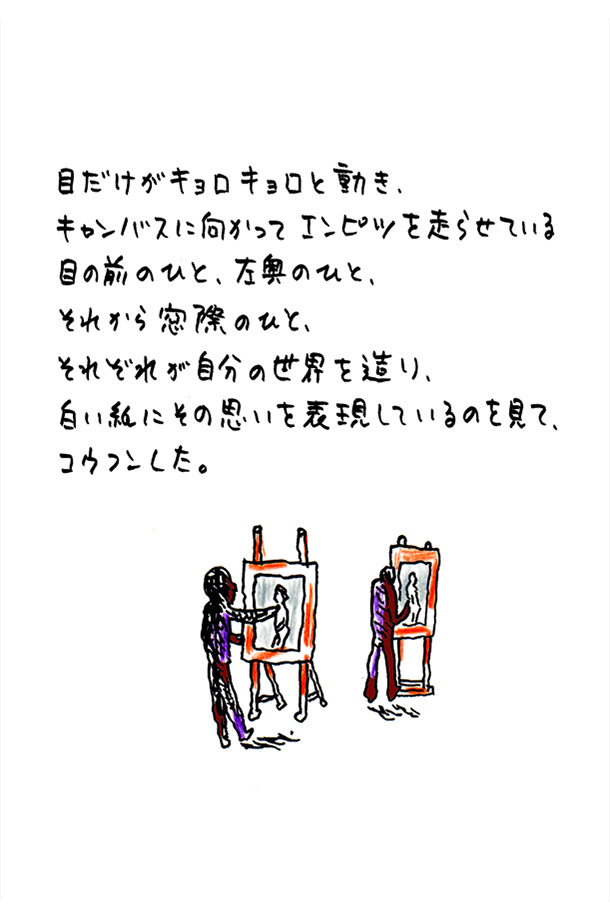 目だけがキョロキョロと動き、
キャンバスに向かってエンピツを走らせている
目の前のひと、左奥のひと、
それから窓際のひと、
それぞれが自分の世界を造り、
白い紙にその思いを表現しているのを見て、
コウフンした。